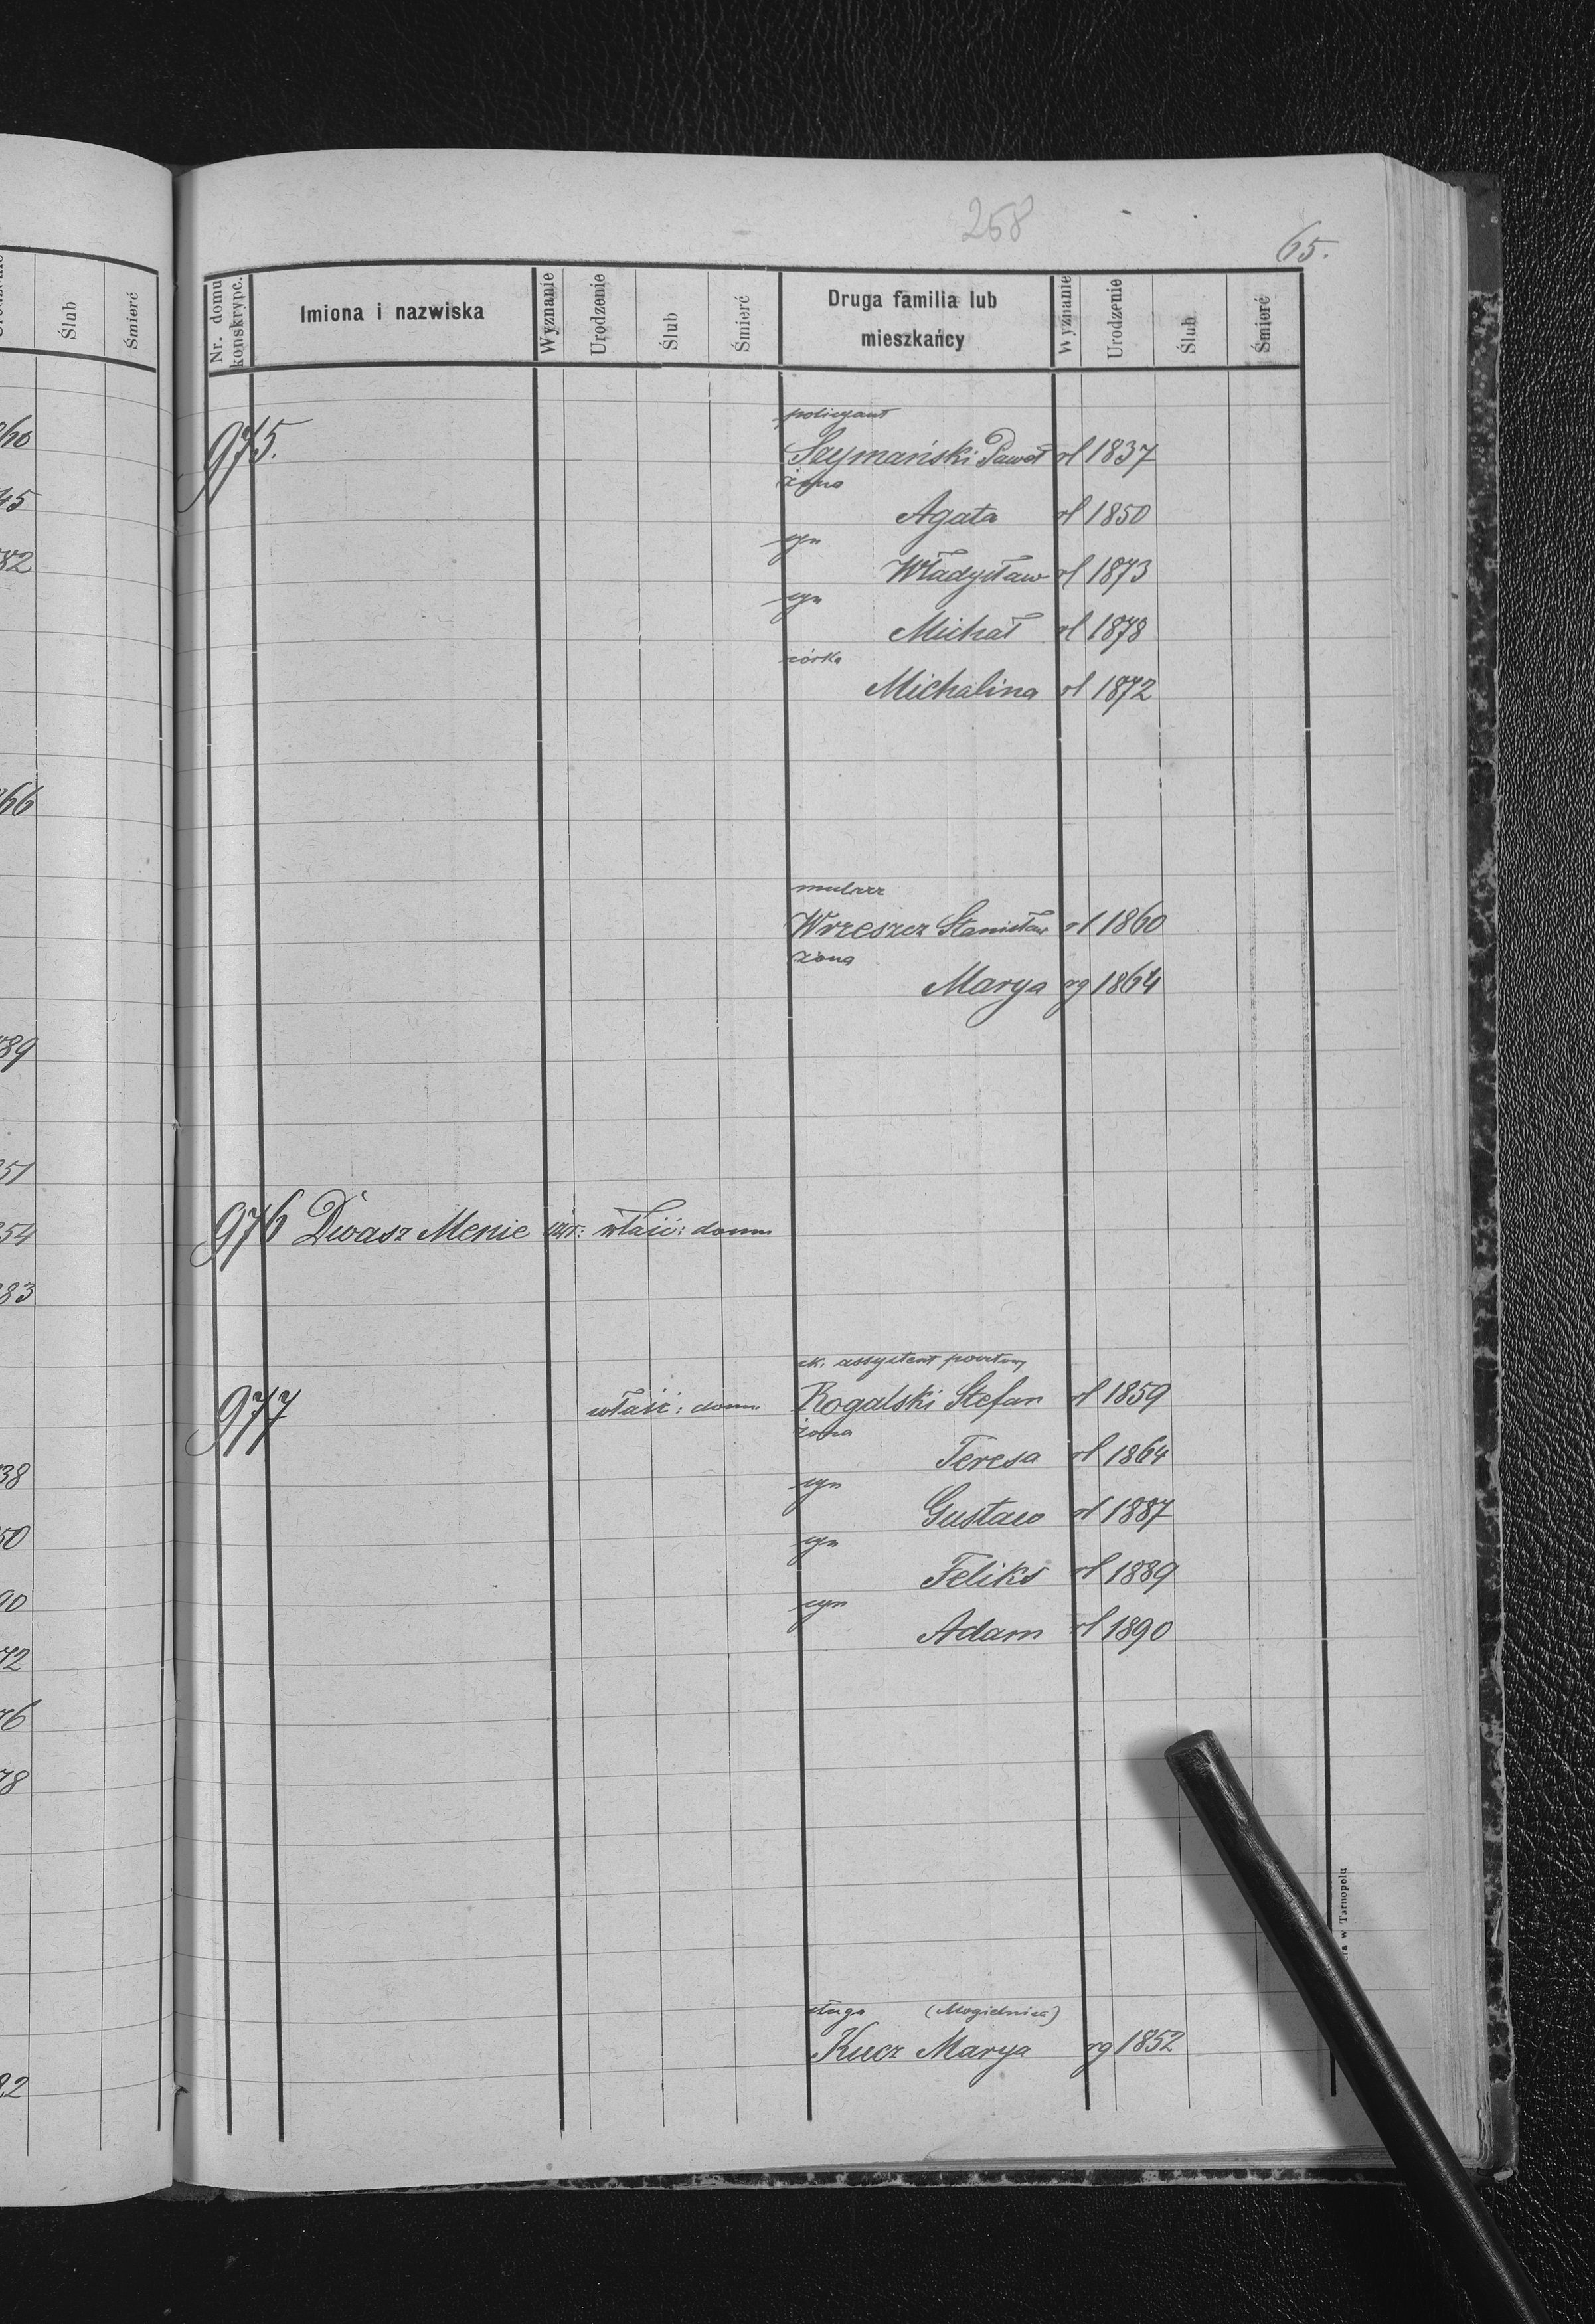 258
65.
Nr. domu konskrypc.
Imiona i nazwiska
Wyznanie
Urodzenie
Ślub
Śmierć
Druga familia lub mieszkańcy
Wyznanie
Urodzenie
Ślub
Śmierć
Ślub
Śmierć
policyant
975. Szymański Paweł rl 1837
żona
Agata rl 1850
syn
Władysław rl 1873
syn
Michał rl 1878
córka
Michalina rl 1872
mularz
Wrzeszcz Stanisław rl 1860
żona
Marya rg 1864
976 Diwasz Menie izr: właść: domu
ck. assystent poczтowy
977 właść: domu Rogalski Stefan rl 1859
żona
Teresa rl 1864
syn
Gustaw rl 1887
syn
Feliks rl 1889
syn
Adam rl 1890
sługa (Mogielnica)
Kucz Marya rg 1852
w Tarnopolu